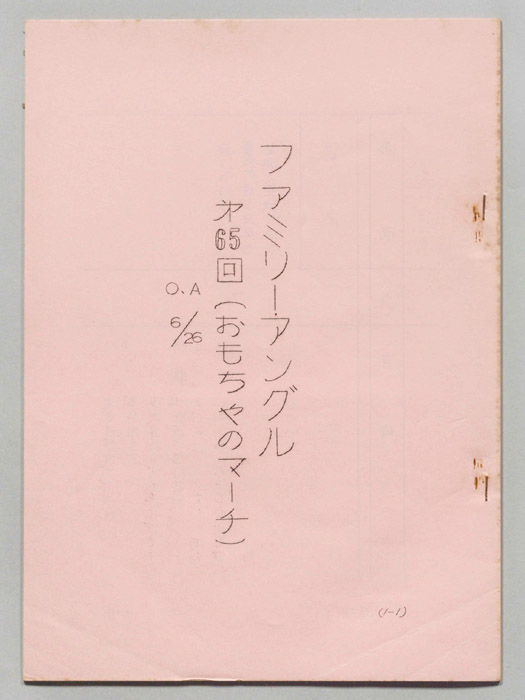 ファミリー・アングル
㐧65回(おもちゃのマーチ)
O.A
6/26
(1-1)